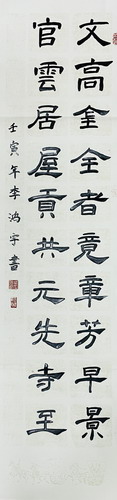 文高金全者竟章芳早景
官雲居屋貢共元先寺至
壬寅年李鴻宇書